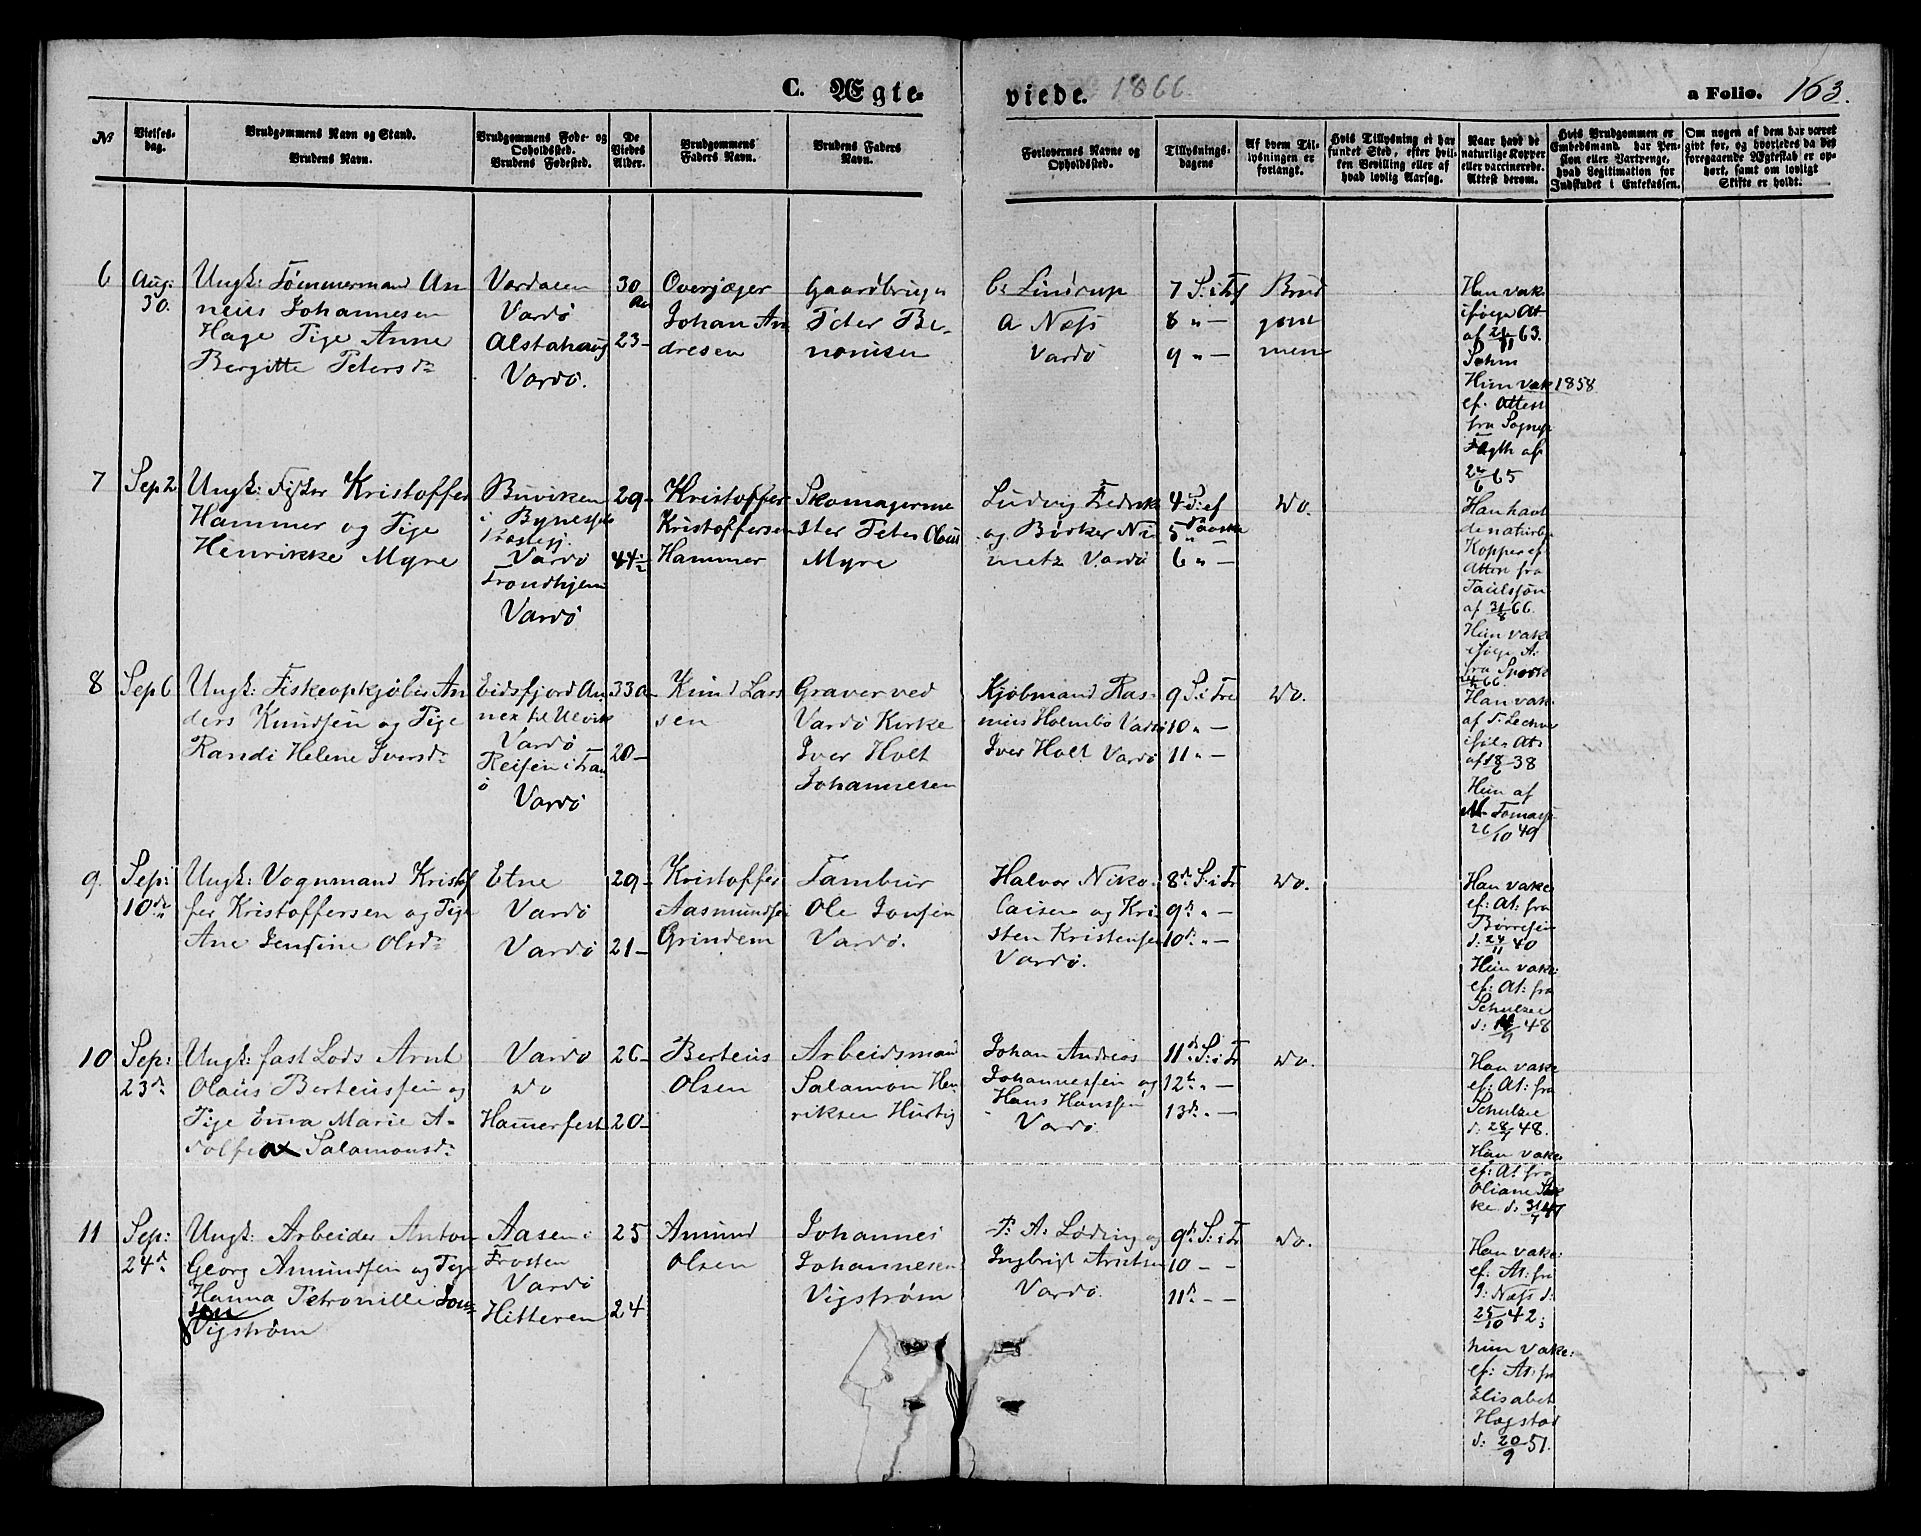 C. Ægte-
viede. 1866.
a Folio. 163.
No
Vielses-
dag.
Brudgommens Navn og Stand.
Brudens Navn.
Brudgommens Føde- og
Opholdssted.
Brudens Fødested.
De
Viedes
Alder.
Brudgommens
Faders Navn.
Brudens Faders
Navn.
Forlovernes Navne og
Opholdssted.
Tillysnings-
dagene
Af hvem Til-
lysningen er
forlangt.
Hvis Tillysning ei har
fundet Sted, efter hvil-
ken Bevilling eller af
hvad lovlig Aarsag.
Naar havt de
naturlige Kopper
eller vaccinerede.
Attest derom.
Hvis Brudgommen er
Embedsmand, har Pen-
sion eller Vartpenge,
hvad Legitimation for
Indskudet i Enkekassen.
Om nogen af dem har været
gift før, og hvorledes da det
foregaaende Ægteskab er op-
hørt, samt om lovligt
Skifte er holdt.
6
Aug:
30.
Ungk: Tømmermand An
neus Johannesen
Hage Pige Anne
Bergitte Petersd:
Værdalen
Vardø
Alstahaug
Vardø.
30
Aar
23-
Overjæger
Johan An
dresen
Gaardbruger
Peter Be-
nonisen
C. Lindrup
A Næss
Vardø
7 S: i Tref
8 " -
9 " -
Brud
gom
men
Han vak:
ifølge At
af 21/11 63.
Sohm
Hun vak 1858
ef. Attest
fra Sognep
Fagth af
2/6 65
7
Sep 2
Ungk: Fisker Kristoffer
Hammer og Pige
Henrikke Myre
Buviken
i Bynesset
Præstegj.
Vardø
Trondhjem
Vardø
29-
44 1/2
Kristoffer
Kristoffersen
Hammer
Skomagerme
ster Peter Olaus
Myre
Ludvig Fredrik
og Børker Ni
metz Vardø
4 S: ef
Paaske
5 " -
6 " -
Do.
Han havt
de naturlige
Kopper ef
Attest fra
Paulssøn
af 31/8 66.
Hun vak:
ifølge A:
fra Spørck
66.
8
Sep 6
Ungk: Fiskeopkjøber An
ders Knudsen og Pige
Randi Helene Iversd:
Eidsfjord An
nex til Ulvik
Vardø
Reisen i Tran
ø
Vardø
33 a-
20-
Knud Lars
sen
Graver ved
Vardø Kirke
Iver Holt
Johannesen
Kjøbmand Ras-
mus Holmbo Vardø
Iver Holt Vardø
9 S: i Tre
10 " -
11 " -
Do.
Han vak:
af P. Lechve
iføl. At:
af 18/6 38
Hun af
M. Tomass
26/10 49
9.
Sep:
10de
Ungk: Vognmand Kristof
fer Kristoffersen og Pige
Ane Jensine Olsd:
Etne
Vardø
Vardø
29-
21-
Kristoffer
Aasmundsen
Grindem
Tambur
Ole Jonsen
Vardø.
Halvor Niko-
laisen og Kri
sten Kristensen
Vardø.
8d: S: i Tr
9d: " -
10d: " -
Do.
Han vake
ef: At: fra
Børresen
d: 24/11 40
Hun vake:
ef: At: fra
Schulzee
d: 14/9 48
10
Sep:
23de
Ungk: fast Lods Arnt
Olaus Berteussen og
Pige Ema Marie A-
dolfine Salamonsd:
Vardø
Do
Hamerfest
26-
20-
Berteus
Olsen
Arbeidsmand
Salamon Hen
riksen Hurtig
Johan Andreas
Johannessen og
Hans Hanssen
Vardø.
11d: S: i Tr
12te " -
13d: " -
Do.
Han vake
ef: At: fra
Schulzee
d: 28/7 48.
Han vake:
ef: At fra
Oliane
d: 31/7 47
11
Sep:
24d:
Ungk: Arbeider Anton
Georg Amundsen og Pige
Hanna Petronille
Vigstrøm
Aasen i
Frosten
Vardø
Hitteren
25
24
Amund
Olsen
Johannes
Johannesen
Vigstrøm
P: A: Løding og
Ingbrigt Arntsen
Vardø.
9d: S: i Tr
10 - -
11d: - -
Do.
Han vake:
ef: At: fra
J: Næss d:
25/10 42;
hun vake:
ef: At: fra
Elisabet
Hogstad
d: 20/9 51.